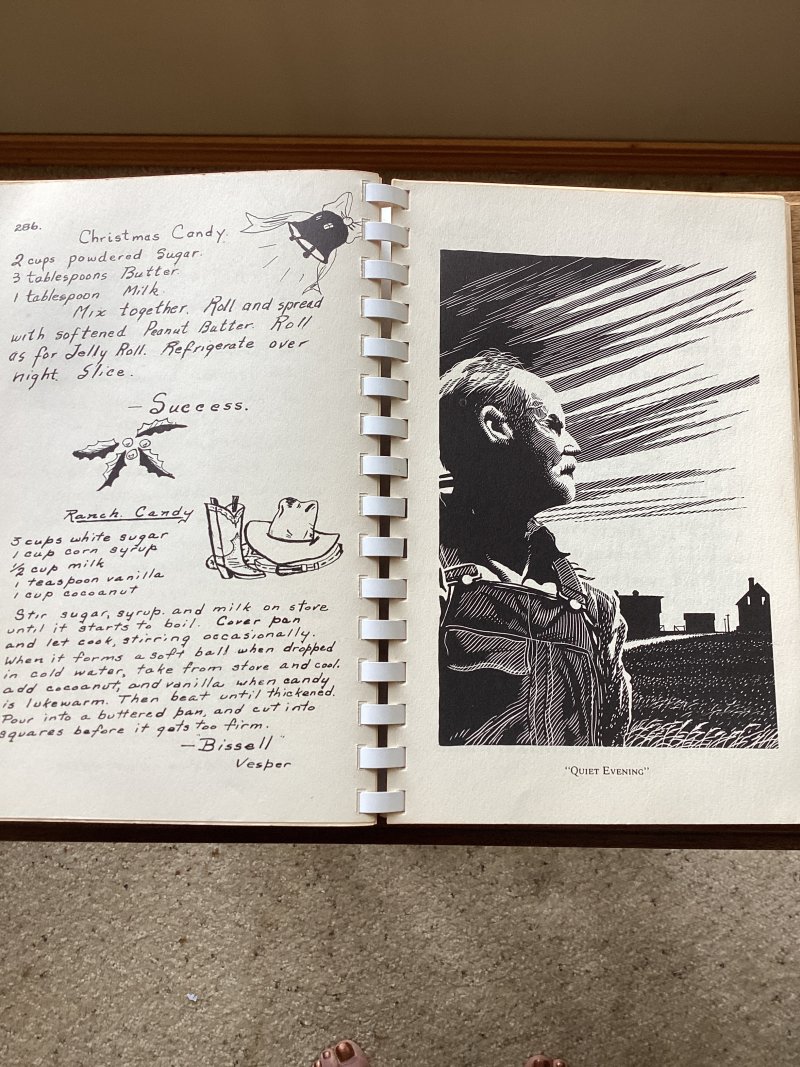 286.
Christmas Candy.
2 cups powdered Sugar.
3 tablespoons Butter.
1 tablespoon Milk.
Mix together. Roll and spread
with softened Peanut Butter. Roll
as for Jelly Roll. Refrigerate over
night. Slice.
— Success.
Ranch Candy
3 cups white sugar
1 cup corn syrup
1/2 cup milk
1 teaspoon vanilla
1 cup cocoanut
Stir sugar, syrup and milk on stove
until it starts to boil. Cover pan
and let cook, stirring occasionally.
When it forms a soft ball when dropped
in cold water, take from stove and cool.
add cocoanut, and vanilla when candy
is lukewarm. Then beat until thickened.
Pour into a buttered pan, and cut into
squares before it gets too firm.
— "Bissell"
Vesper
"Quiet Evening"